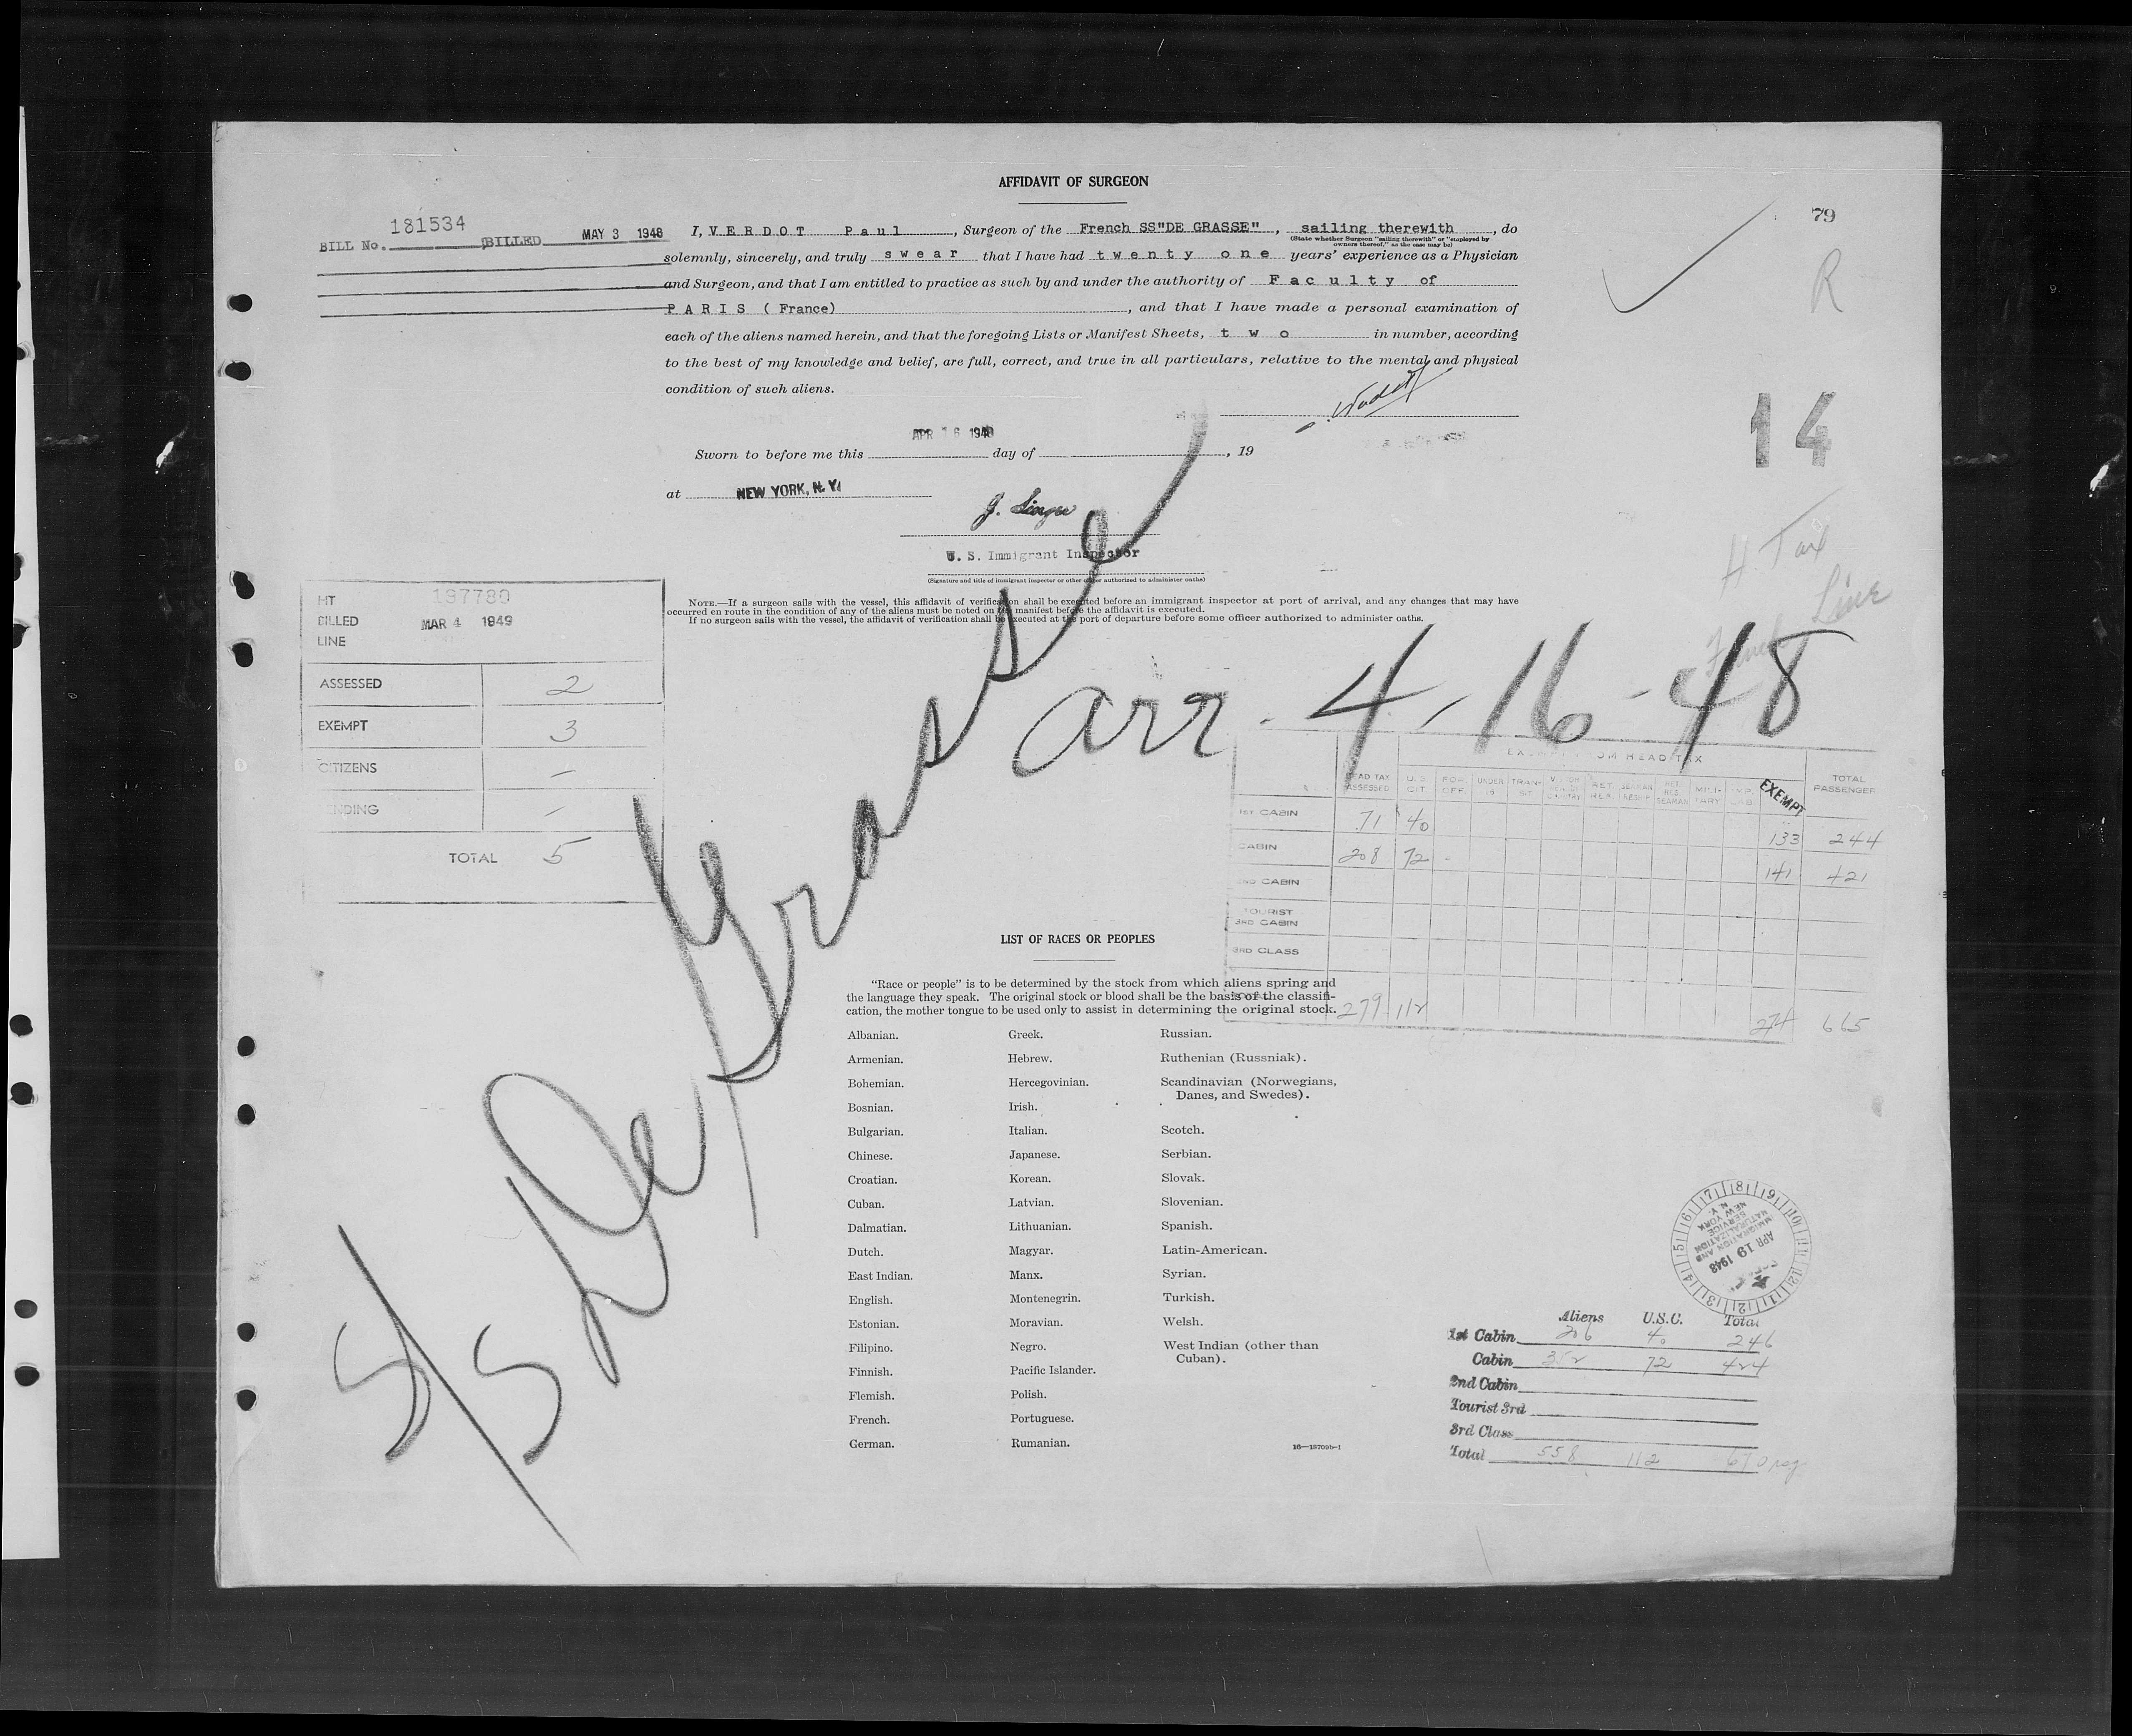 AFFIDAVIT OF SURGEON
79
BILL No. 181534 BILLED MAY 3 1948
I, VERDOT Paul, Surgeon of the French SS"DE GRASSE", sailing therewith, do
(State whether Surgeon "sailing therewith" or "employed by owners thereof," as the case may be)
solemnly, sincerely, and truly swear that I have had twenty one years' experience as a Physician
and Surgeon, and that I am entitled to practice as such by and under the authority of Faculty of
PARIS (France), and that I have made a personal examination of
each of the aliens named herein, and that the foregoing Lists or Manifest Sheets, two in number, according
to the best of my knowledge and belief, are full, correct, and true in all particulars, relative to the mental and physical
condition of such aliens.
R
14
APR 16 1948
Sworn to before me this day of , 19
at NEW YORK, N. Y.
U. S. Immigrant Inspector
(Signature and title of immigrant inspector or other officer authorized to administer oaths)
NOTE.—If a surgeon sails with the vessel, this affidavit of verification shall be executed before an immigrant inspector at port of arrival, and any changes that may have
occurred en route in the condition of any of the aliens must be noted on the manifest before the affidavit is executed.
If no surgeon sails with the vessel, the affidavit of verification shall be executed at the port of departure before some officer authorized to administer oaths.
H. Tax
Line
HT 187780
BILLED MAR 4 1949
LINE
ASSESSED 2
EXEMPT 3
CITIZENS –
PENDING –
TOTAL 5
S/S De Grasse
arr. 4-16-48
EXEMPT FROM HEAD TAX
HEAD TAX ASSESSED U.S. CIT. FOR. OFF. UNDER 16 TRANSIT MILITARY EXEMPT TOTAL PASSENGER
1ST CABIN 71 40 133 244
CABIN 208 72 141 421
2ND CABIN
TOURIST 3RD CABIN
3RD CLASS
279 112 274 665
LIST OF RACES OR PEOPLES
"Race or people" is to be determined by the stock from which aliens spring and
the language they speak. The original stock or blood shall be the basis of the classifi-
cation, the mother tongue to be used only to assist in determining the original stock.
Albanian. Greek. Russian.
Armenian. Hebrew. Ruthenian (Russniak).
Bohemian. Hercegovinian. Scandinavian (Norwegians,
Danes, and Swedes).
Bosnian. Irish.
Bulgarian. Italian. Scotch.
Chinese. Japanese. Serbian.
Croatian. Korean. Slovak.
Cuban. Latvian. Slovenian.
Dalmatian. Lithuanian. Spanish.
Dutch. Magyar. Latin-American.
East Indian. Manx. Syrian.
English. Montenegrin. Turkish.
Estonian. Moravian. Welsh.
Filipino. Negro. West Indian (other than
Cuban).
Finnish. Pacific Islander.
Flemish. Polish.
French. Portuguese.
German. Rumanian.
16—18709b-1
IMMIGRATION AND
NATURALIZATION
SERVICE
NEW YORK
N. Y.
APR 19 1948
Aliens U.S.C. Total
1st Cabin 206 40 246
Cabin 352 72 424
2nd Cabin
Tourist 3rd
3rd Class
Total 558 112 670